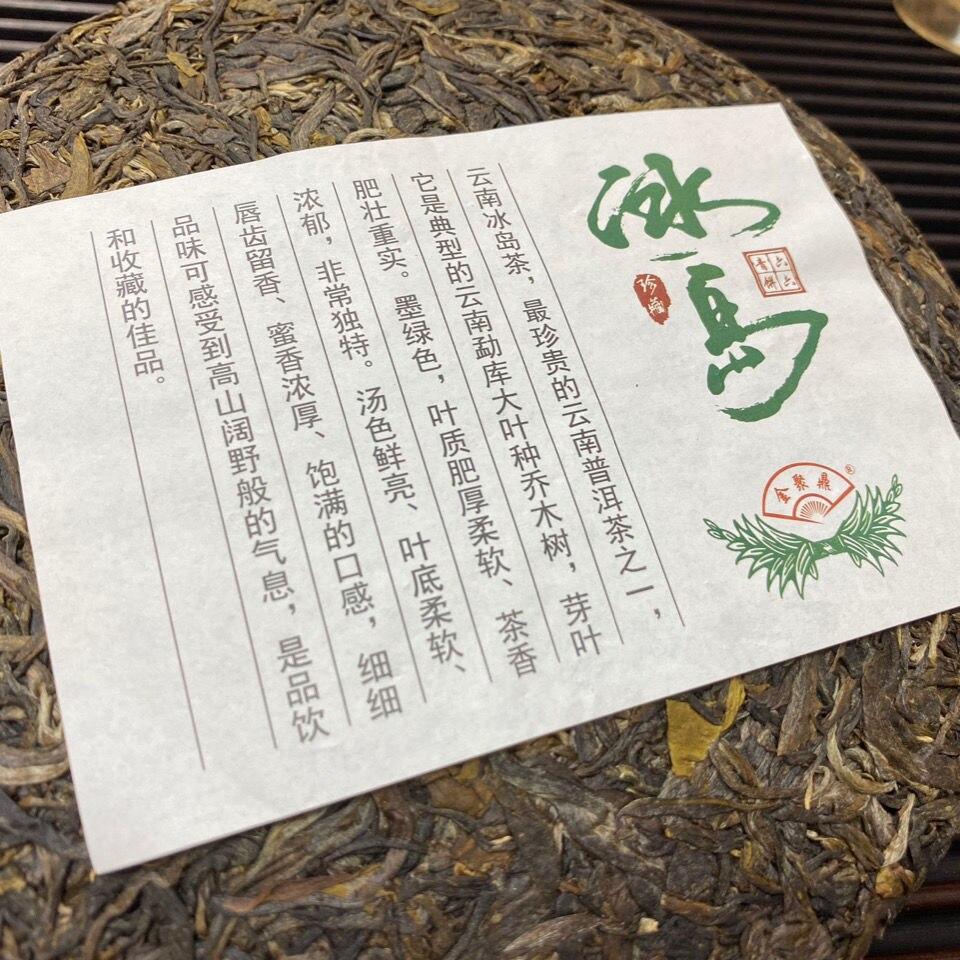 冰岛
六六
青饼
珍藏
金聚鼎
云南冰岛茶，最珍贵的云南普洱茶之一，
它是典型的云南勐库大叶种乔木树，芽叶
肥壮重实。墨绿色，叶质肥厚柔软、茶香
浓郁，非常独特。汤色鲜亮、叶底柔软、
唇齿留香、蜜香浓厚、饱满的口感，细细
品味可感受到高山阔野般的气息，是品饮
和收藏的佳品。